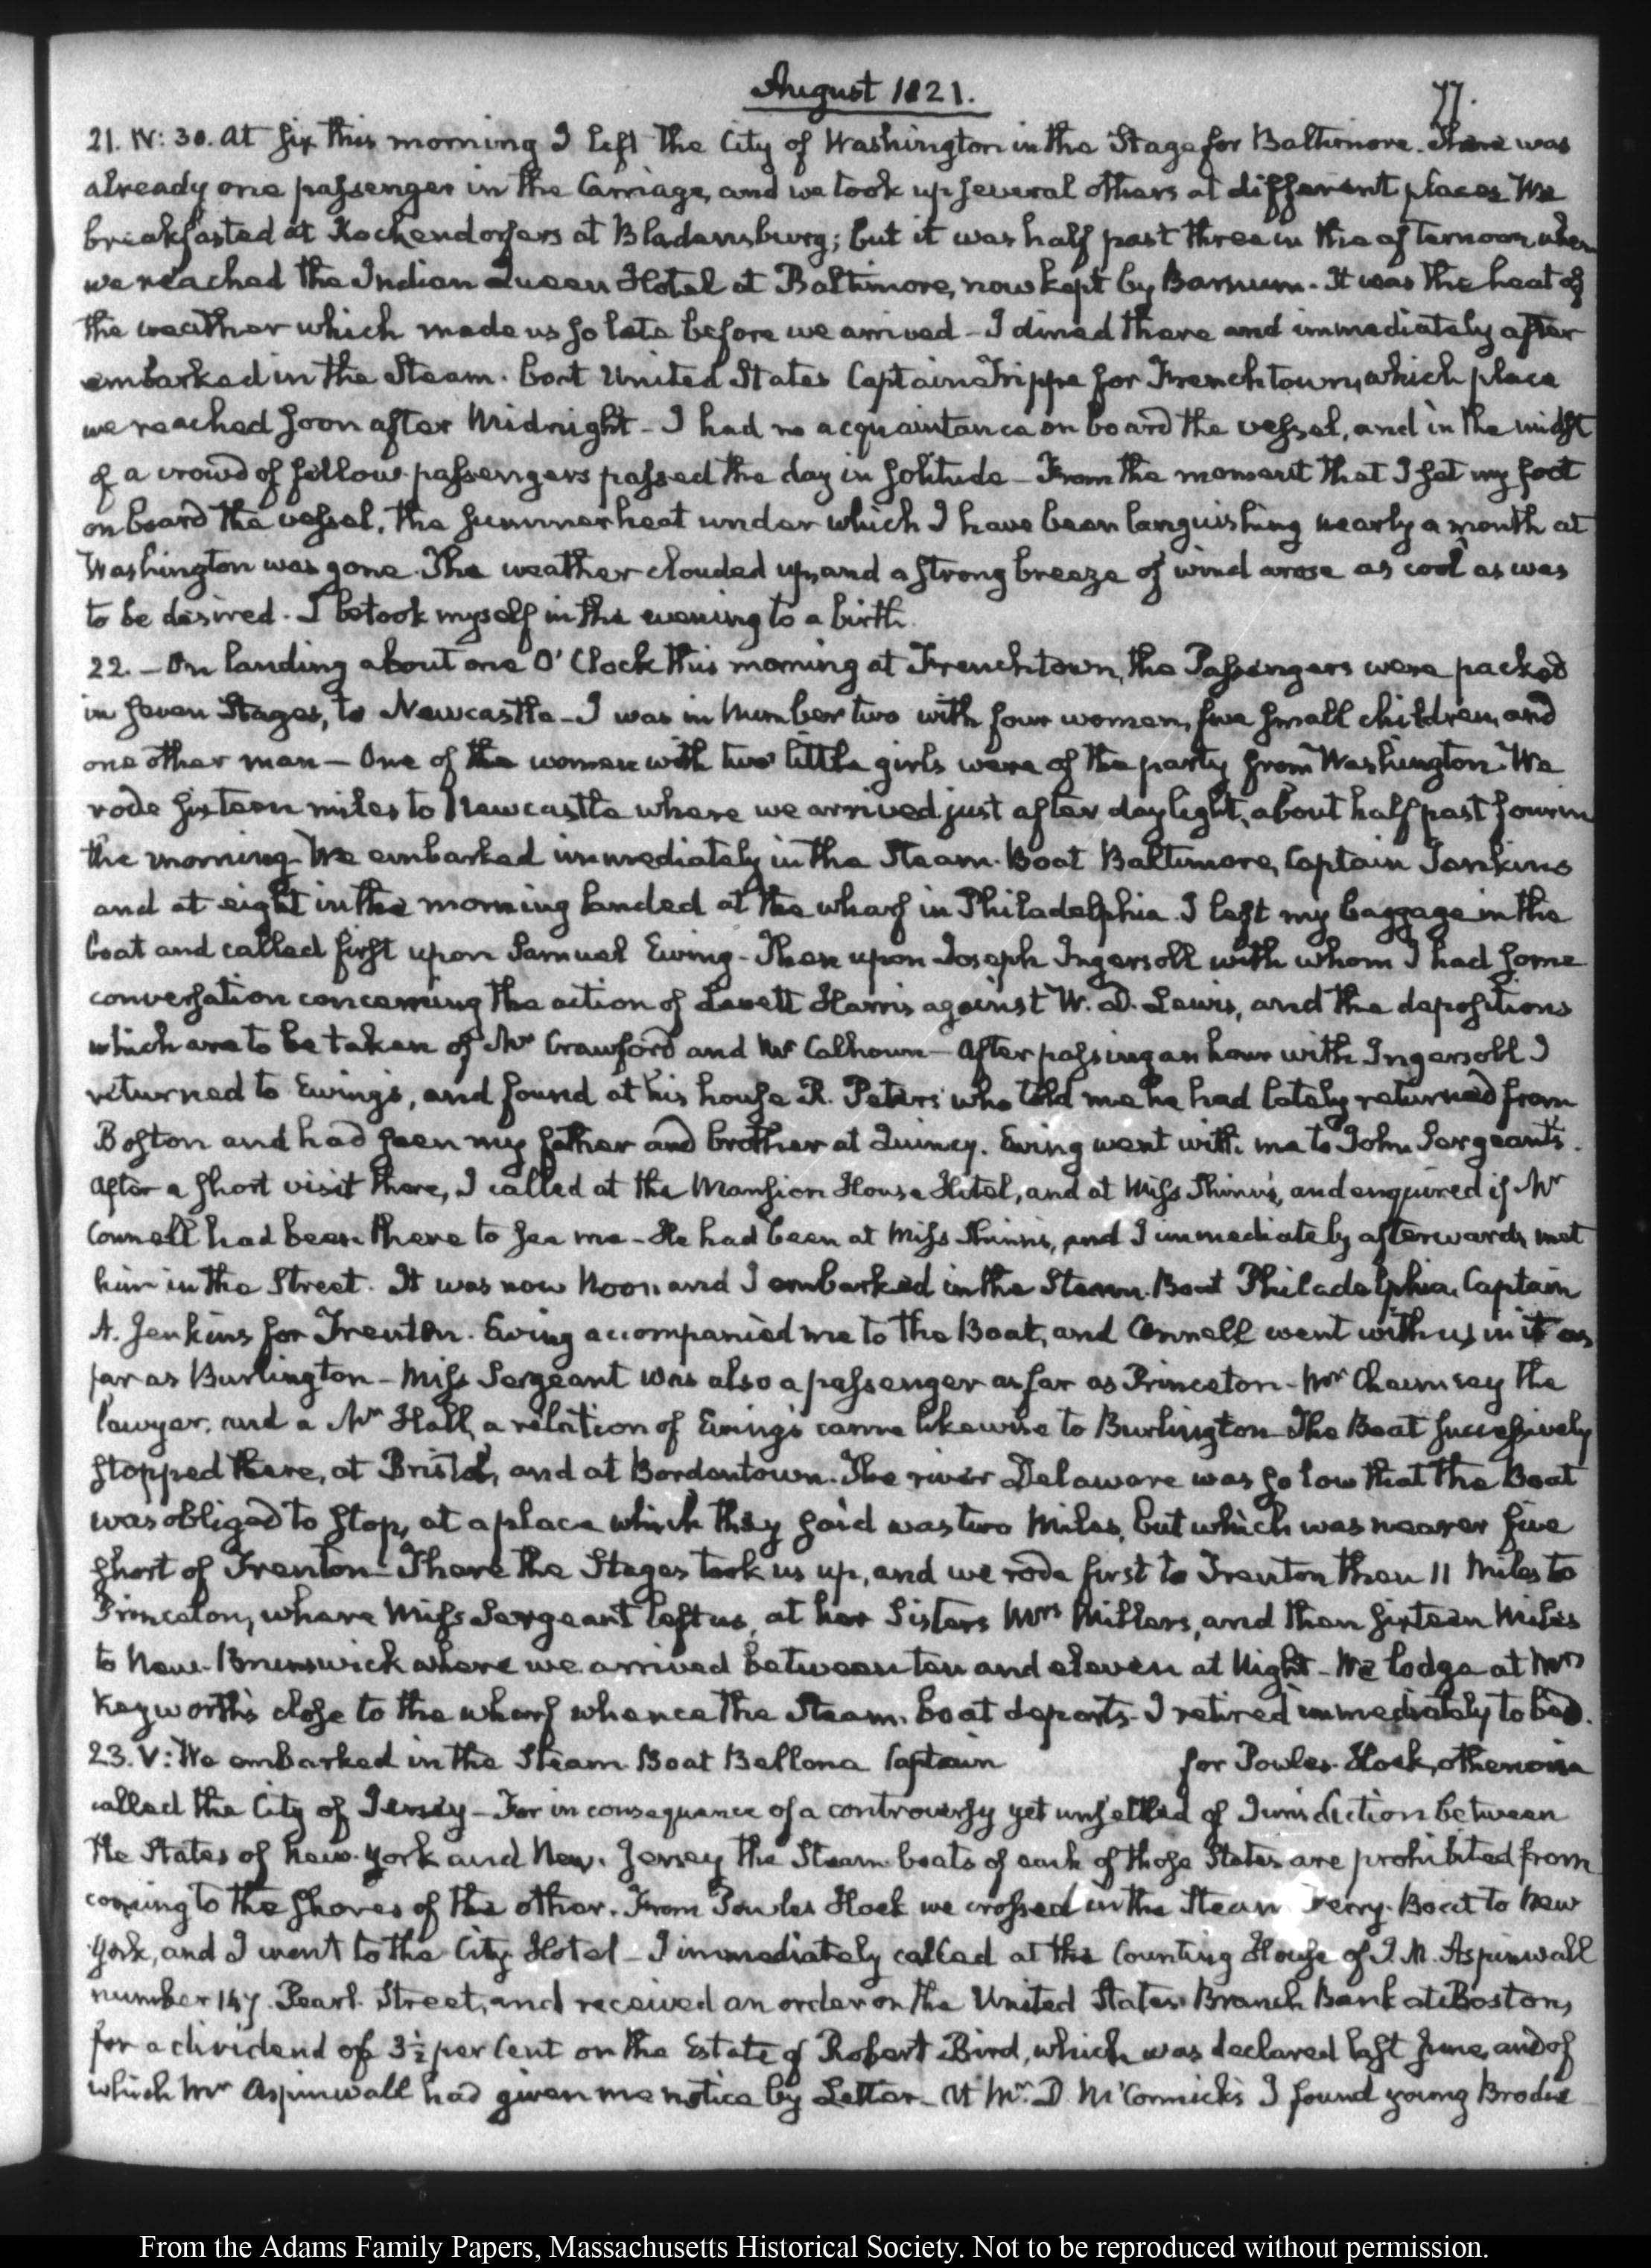 August 1821.
77.
21. IV: 30. At six this morning I left the City of Washington in the Stage for Baltimore. There was
already one passenger in the Carriage, and we took up several others at different places. We
breakfasted at Kochendorfers at Bladensburg; but it was half past three in the afternoon when
we reached the Indian Queen Hotel at Baltimore, now kept by Barnum. It was the heat of
the weather which made us so late before we arrived - I dined there and immediately after
embarked in the Steam-boat United States Captain Trippe for Frenchtown, which place
we reached soon after Midnight - I had no acquaintance on board the vessel, and in the midst
of a crowd of fellow-passengers passed the day in solitude - From the moment that I set my foot
on board the vessel, the summer heat under which I have been languishing nearly a month at
Washington was gone. The weather clouded up, and a strong breeze of wind arose as cool as was
to be desired. I betook myself in the evening to a birth.
22. - On landing about one O'Clock this morning at Frenchtown, the Passengers were packed
in seven Stages, to Newcastle - I was in Number two with four women, five small children, and
one other man - One of the women with two little girls were of the party from Washington. We
rode sixteen miles to Newcastle where we arrived just after daylight, about half past four in
the morning. We embarked immediately in the Steam-Boat Baltimore, Captain Jenkins
and at eight in the morning landed at the wharf in Philadelphia. I left my baggage in the
boat and called first upon Samuel Ewing - Then upon Joseph Ingersoll with whom I had some
conversation concerning the action of Levett Harris against W. D. Lewis, and the depositions
which are to be taken of Mr Crawford and Mr Calhoun - After passing an hour with Ingersoll I
returned to Ewing's, and found at his house R. Peters who told me he had lately returned from
Boston and had seen my father and brother at Quincy. Ewing went with me to John Sergeant's.
After a short visit there, I called at the Mansion House Hotel, and at Miss Shinn's, and enquired if Mr
Connell had been there to see me - He had been at Miss Shinn's, and I immediately afterwards met
him in the Street. It was now Noon and I embarked in the Steam-Boat Philadelphia, Captain
A. Jenkins for Trenton. Ewing accompanied me to the Boat, and Connell went with us in it as
far as Burlington - Miss Sergeant was also a passenger as far as Princeton - Mr Chauncey the
lawyer, and a Mr Hall, a relation of Ewing's came likewise to Burlington - The Boat successively
stopped there, at Bristol, and at Bordentown. The river Delaware was so low that the Boat
was obliged to stop, at a place which they said was two Miles, but which was nearer five
short of Trenton - There the Stages took us up, and we rode first to Trenton then 11 Miles to
Princeton, where Miss Sergeant left us, at her Sisters Mrs Millers, and then sixteen Miles
to New-Brunswick where we arrived between ten and eleven at Night - We lodge at Mrs
Keyworth's close to the wharf whence the Steam-boat departs - I retired immediately to bed.
23. V: We embarked in the Steam-Boat Bellona Captain for Powles-Hook, otherwise
called the City of Jersey - For in consequence of a controversy yet unsettled of Jurisdiction between
the States of New-York and New-Jersey the Steam-boats of each of those States are prohibited from
coming to the shores of the other. From Powles Hook we crossed in the Steam Ferry-Boat to New
York, and I went to the City Hotel - I immediately called at the Counting House of J. M. Aspinwall
number 147. Pearl-Street, and received an order on the United States Branch Bank at Boston,
for a dividend of 3½ per Cent on the Estate of Robert Bird, which was declared last June, and of
which Mr Aspinwall had given me notice by Letter - At Mr D. McCormick's I found young Brodie
From the Adams Family Papers, Massachusetts Historical Society. Not to be reproduced without permission.